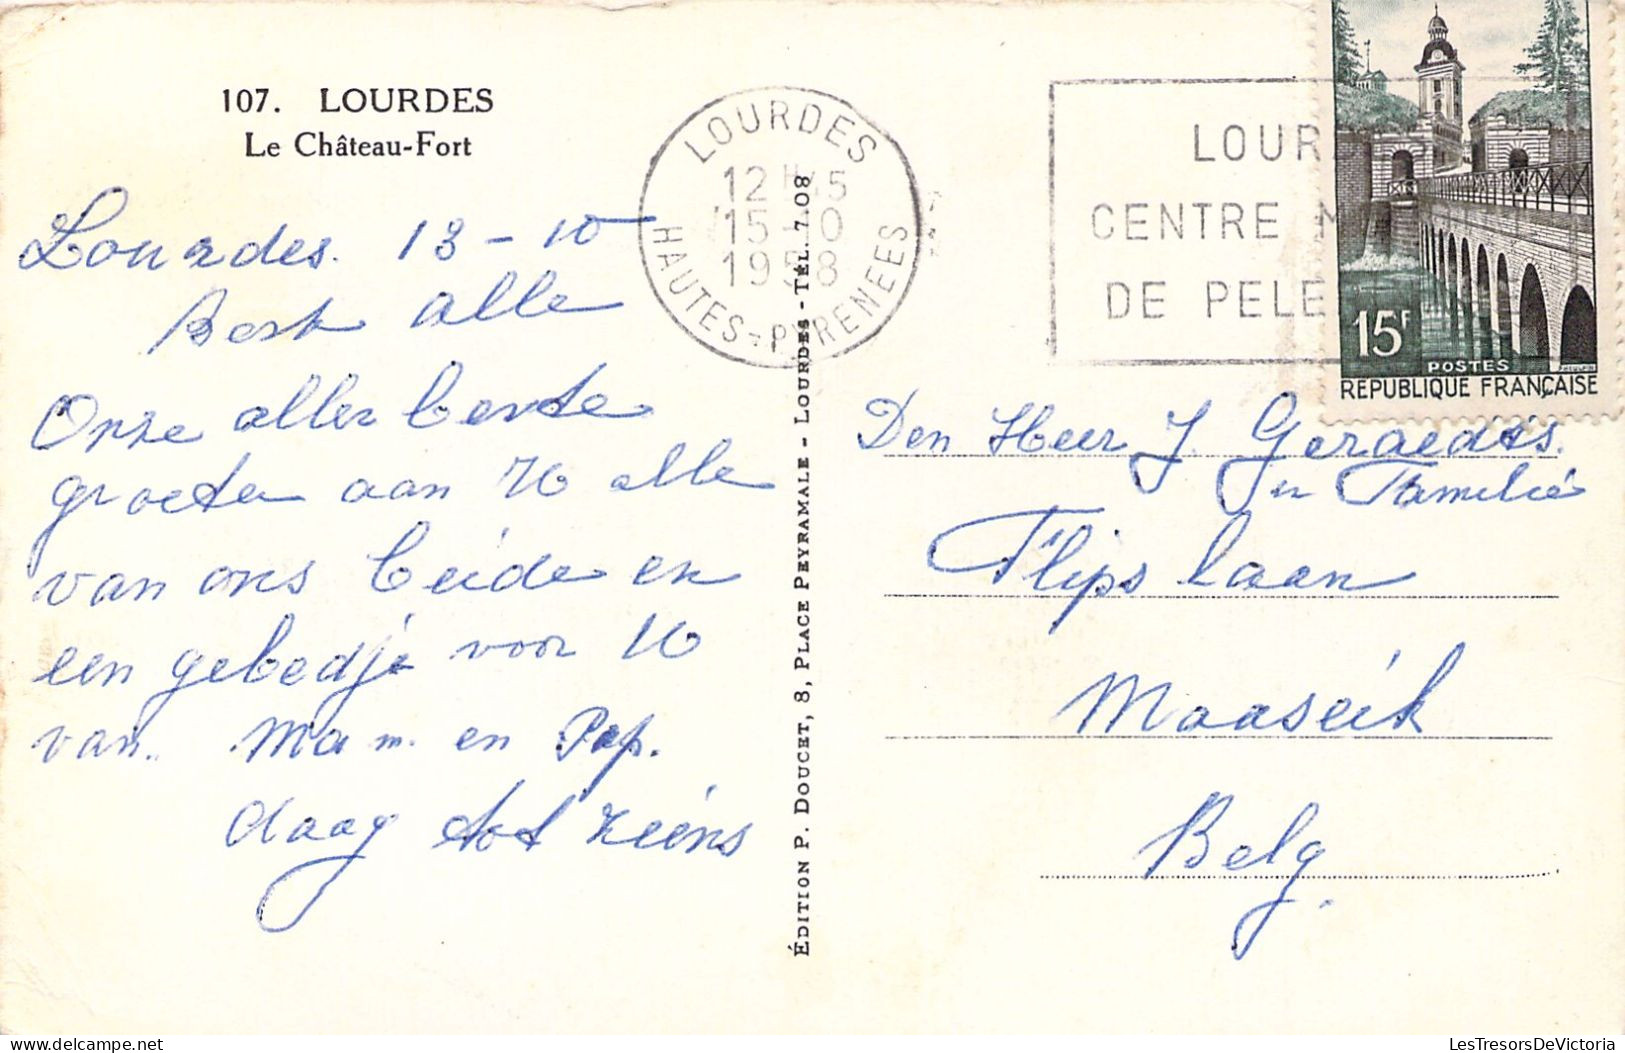 107. LOURDES
Le Château-Fort
Lourdes. 13 - 10
Best alle
Onze aller beste
groeten aan U alle
van ons beide en
een gebedje voor U
van. Mam. en Pap.
daag tot ziens
LOURDES
12 H 15
15-10
1958
HAUTES-PYRENEES
ÉDITION P. DOUCET, 8, PLACE PEYRAMALE - LOURDES - TÉL. 7.08
LOUR
CENTRE M
DE PELE
15F
POSTES
REPUBLIQUE FRANÇAISE
Den Heer J. Geraedts.
en Familie
Flips laan
Maaseik
Belg.
delcampe.net
LesTresorsDeVictoria